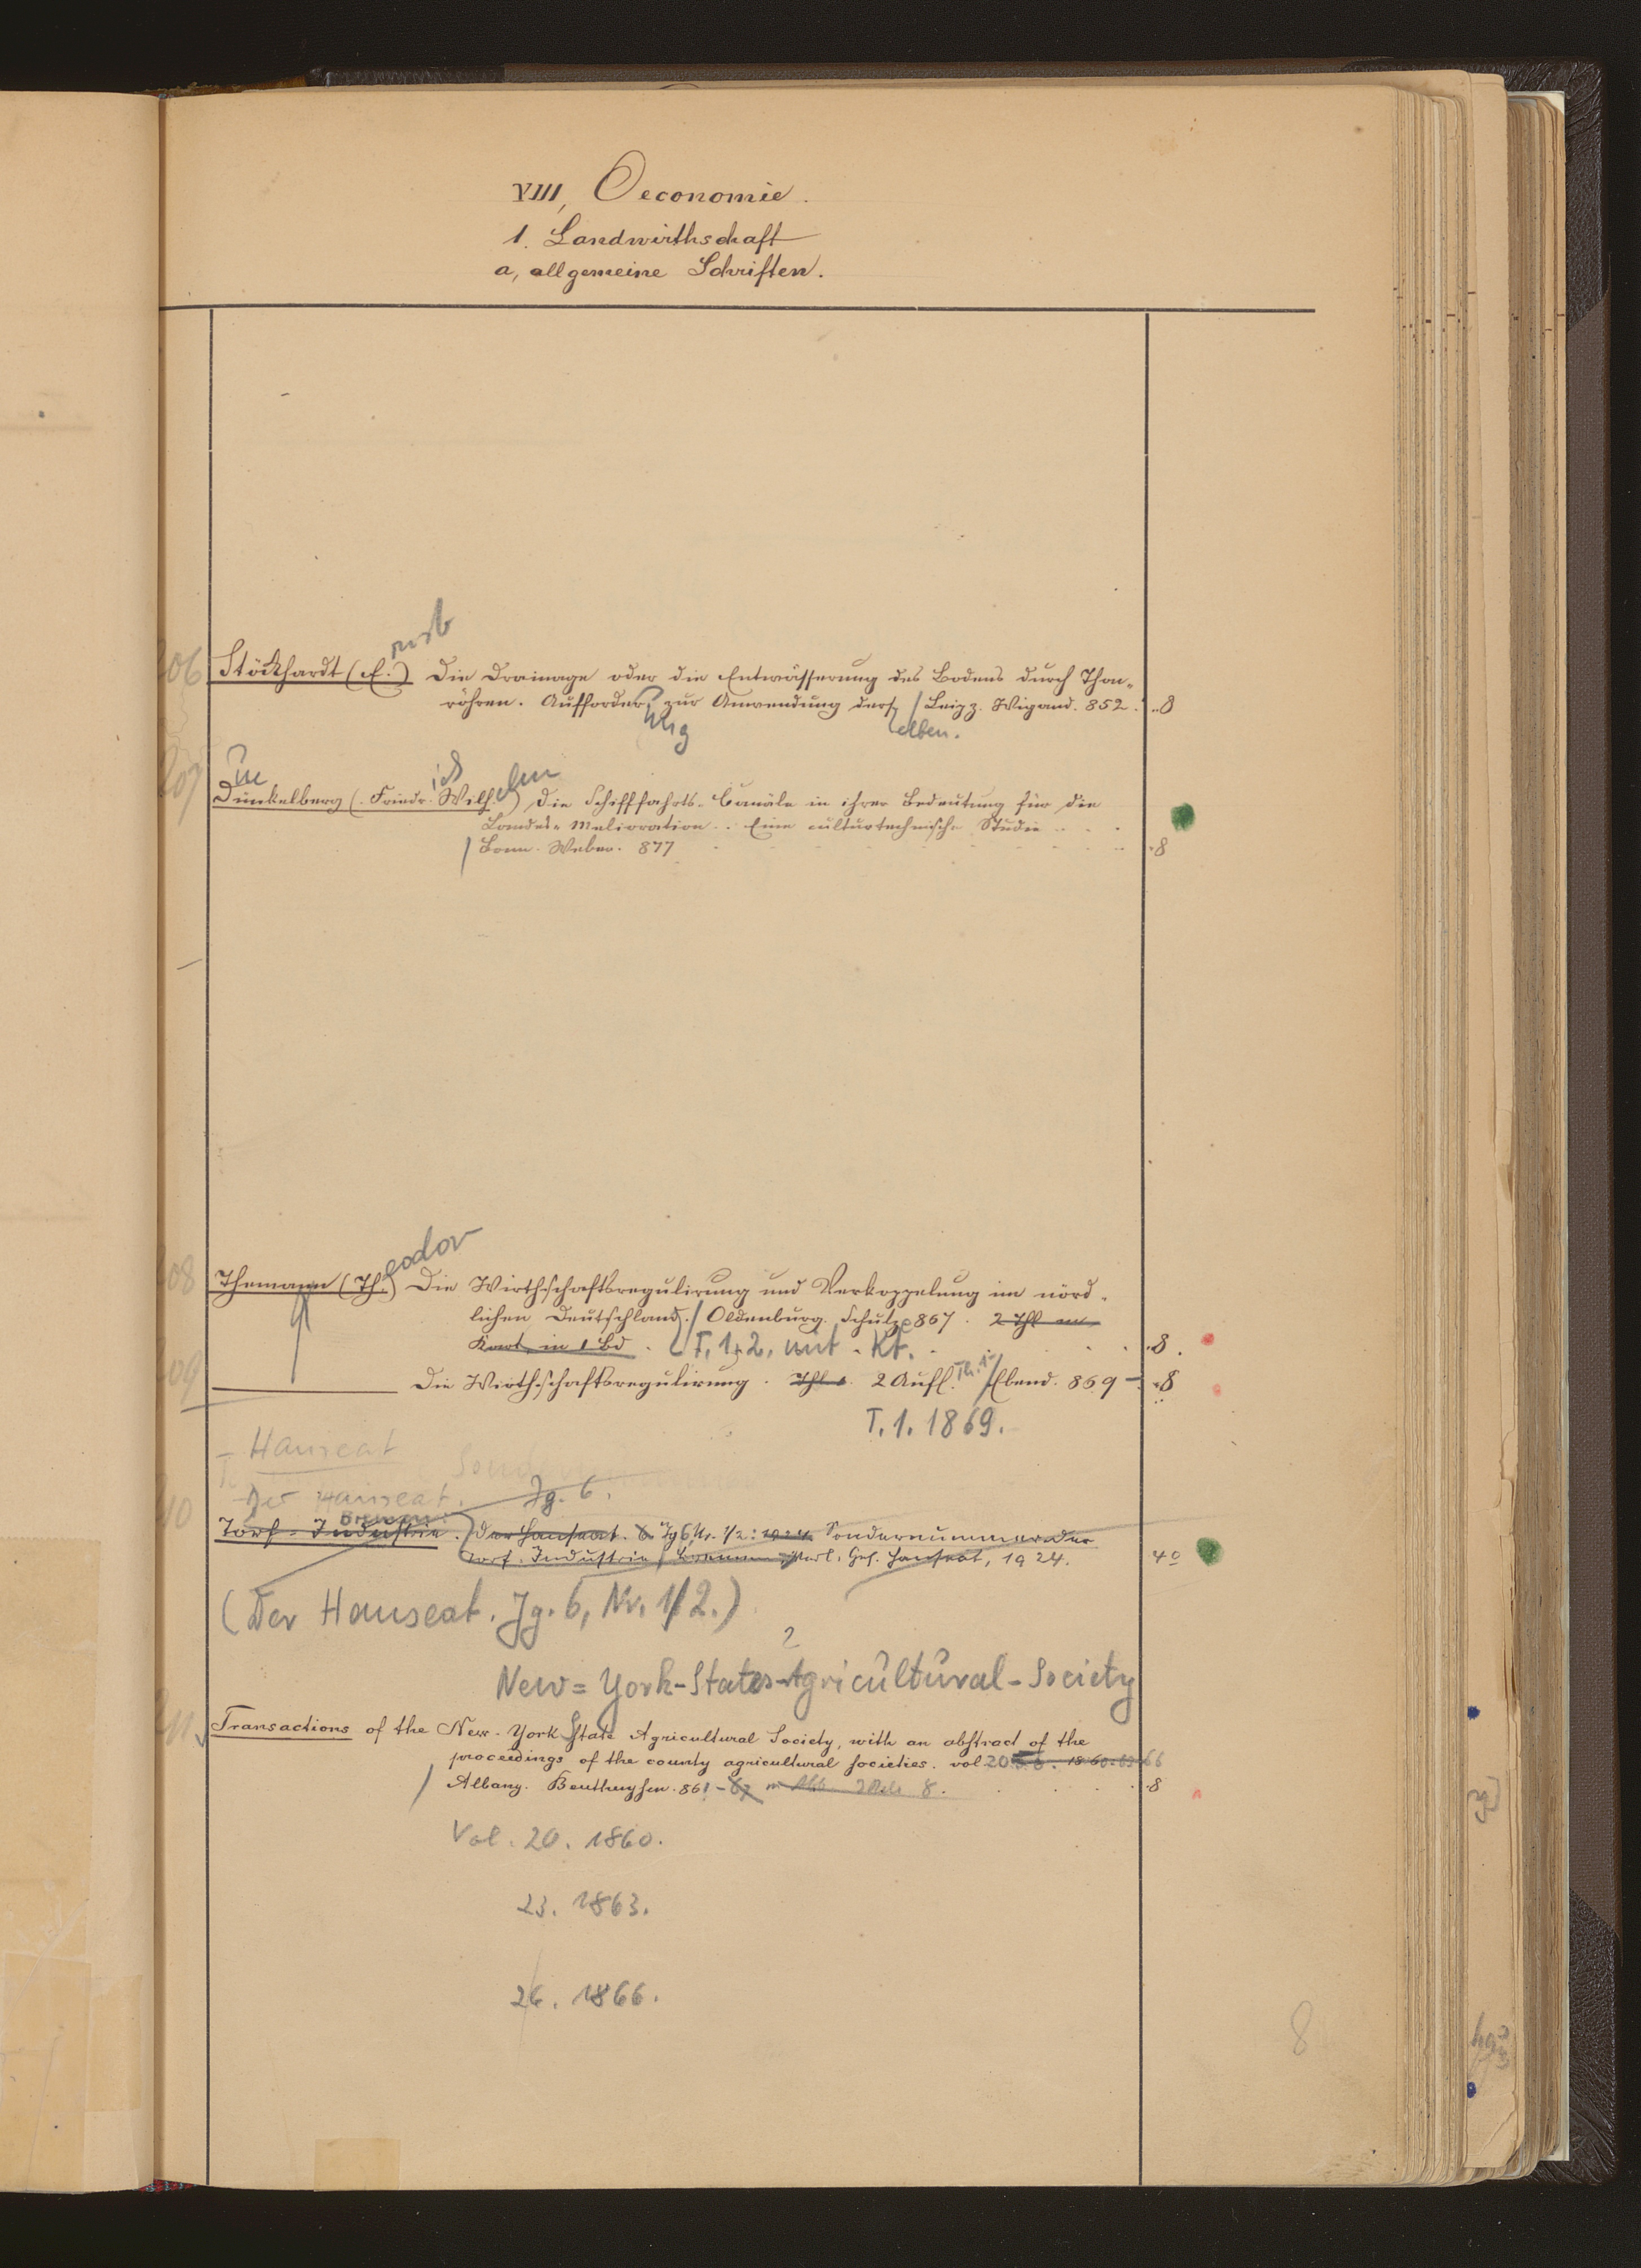 VIII, Oeconomie.
1. Landwirthschaft
a, allgemeine Schriften.
nst
206 Stöckhardt (E.) Die Drainage oder die Entwässerung des Bodens durch Thon-
röhren. Aufforder. zur Anwendung ders. / Leipz. Wigand. 852. 8
ung elben.
ü ich elm
207 Dünkelberg (Friedr. Wilh.) Die Schifffahrts-Canäle in ihrer Bedeutung für die
Landes-Melioration. Eine culturtechnische Studie
/ Bonn. Weber. 877 8
eodor
208 Themann (Th.) Die Wirthschaftsregulirung und Verkoppelung im nörd-
lichen Deutschland. / Oldenburg. Schulze 867. 2 Thl m.
Kart. in 1 Bd. T. 1, 2, mit Kt. 8.
209 Die Wirthschaftsregulirung. Thl 1. 2 Aufl. Th. 1 / Ebend. 869 - 8
T. 1. 1869.
- Hanseat
Der Hanseat. Jg. 6.
Bremen:
210 Torf-Industrie. Der Hanseat. Jg 6, Nr. 1/2: 1924 Sondernummer der
Torf-Industrie / Bremen: Verl. Ges. Hanseat, 1924. 4°
(Der Hanseat. Jg. 6, Nr. 1/2.)
?
New=York-States-Agricultural-Society
211 Transactions of the New-York State Agricultural Society, with an abstract of the
proceedings of the county agricultural societies. vol 20. 1860. 63. 66
/ Albany. Benthuysen. 861-67 8
Vol. 20. 1860.
23. 1863.
26. 1866.
8